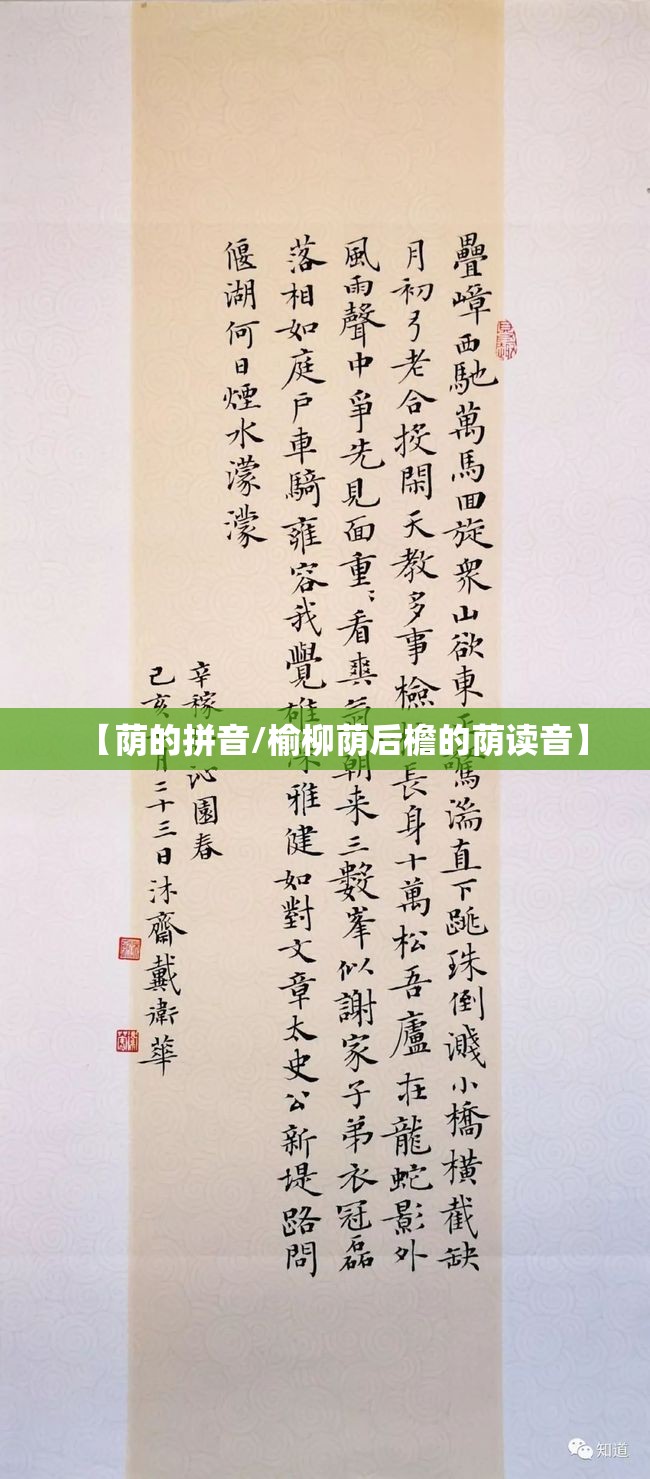 疊嶂西馳萬馬回旋衆山欲東湍直下跳珠倒濺小橋橫截缺
月初弓老合投閑天教多事檢長身十萬松吾廬在龍蛇影外
風雨聲中爭先見面重〻看爽氣朝来三數峯似謝家子弟衣冠磊
落相如庭戶車騎雍容我覺雄深雅健如對文章太史公新堤路問
偃湖何日煙水濛濛
辛稼沁園春
己亥月二十三日沐齋戴衛華
【荫的拼音/榆柳荫后檐的荫读音】
知道